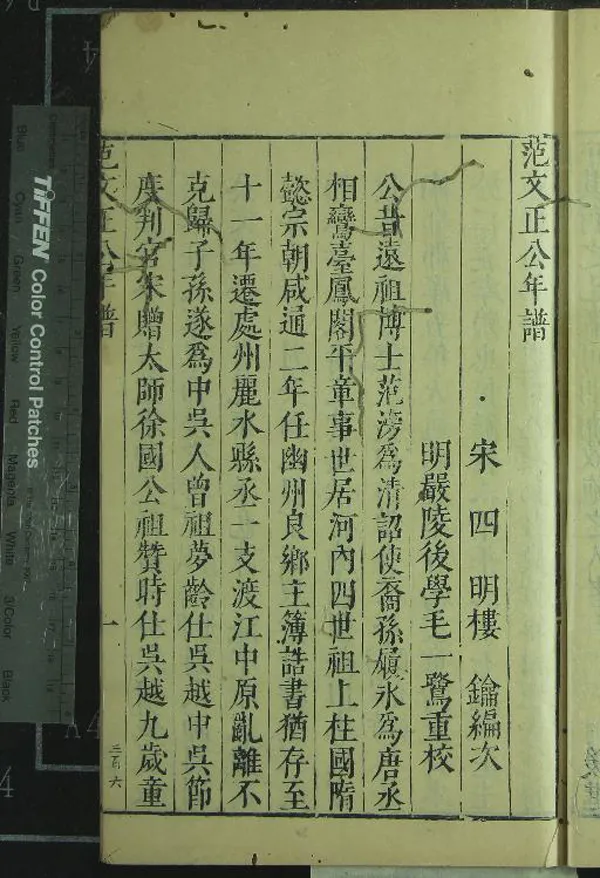 范文正公年譜
宋 四明樓 鑰編次
明嚴陵後學毛一鷺重校
公昔遠祖博士范滂爲清詔使裔孫履氷爲唐丞
相鸞臺鳳閣平章事世居河內四世祖上柱國隋
懿宗朝咸通二年任幽州良鄉主簿誥書猶存至
十一年遷處州麗水縣丞一支渡江中原亂離不
克歸子孫遂爲中吳人曾祖夢齡仕吳越中吳節
度判官宋贈太師徐國公祖贊時仕吳越九歲童
范文正公年譜
一
三百六
TIFFEN Color Control Patches
Blue
Cyan
Green
Yellow
Red
Magenta
White
3/Color
Black